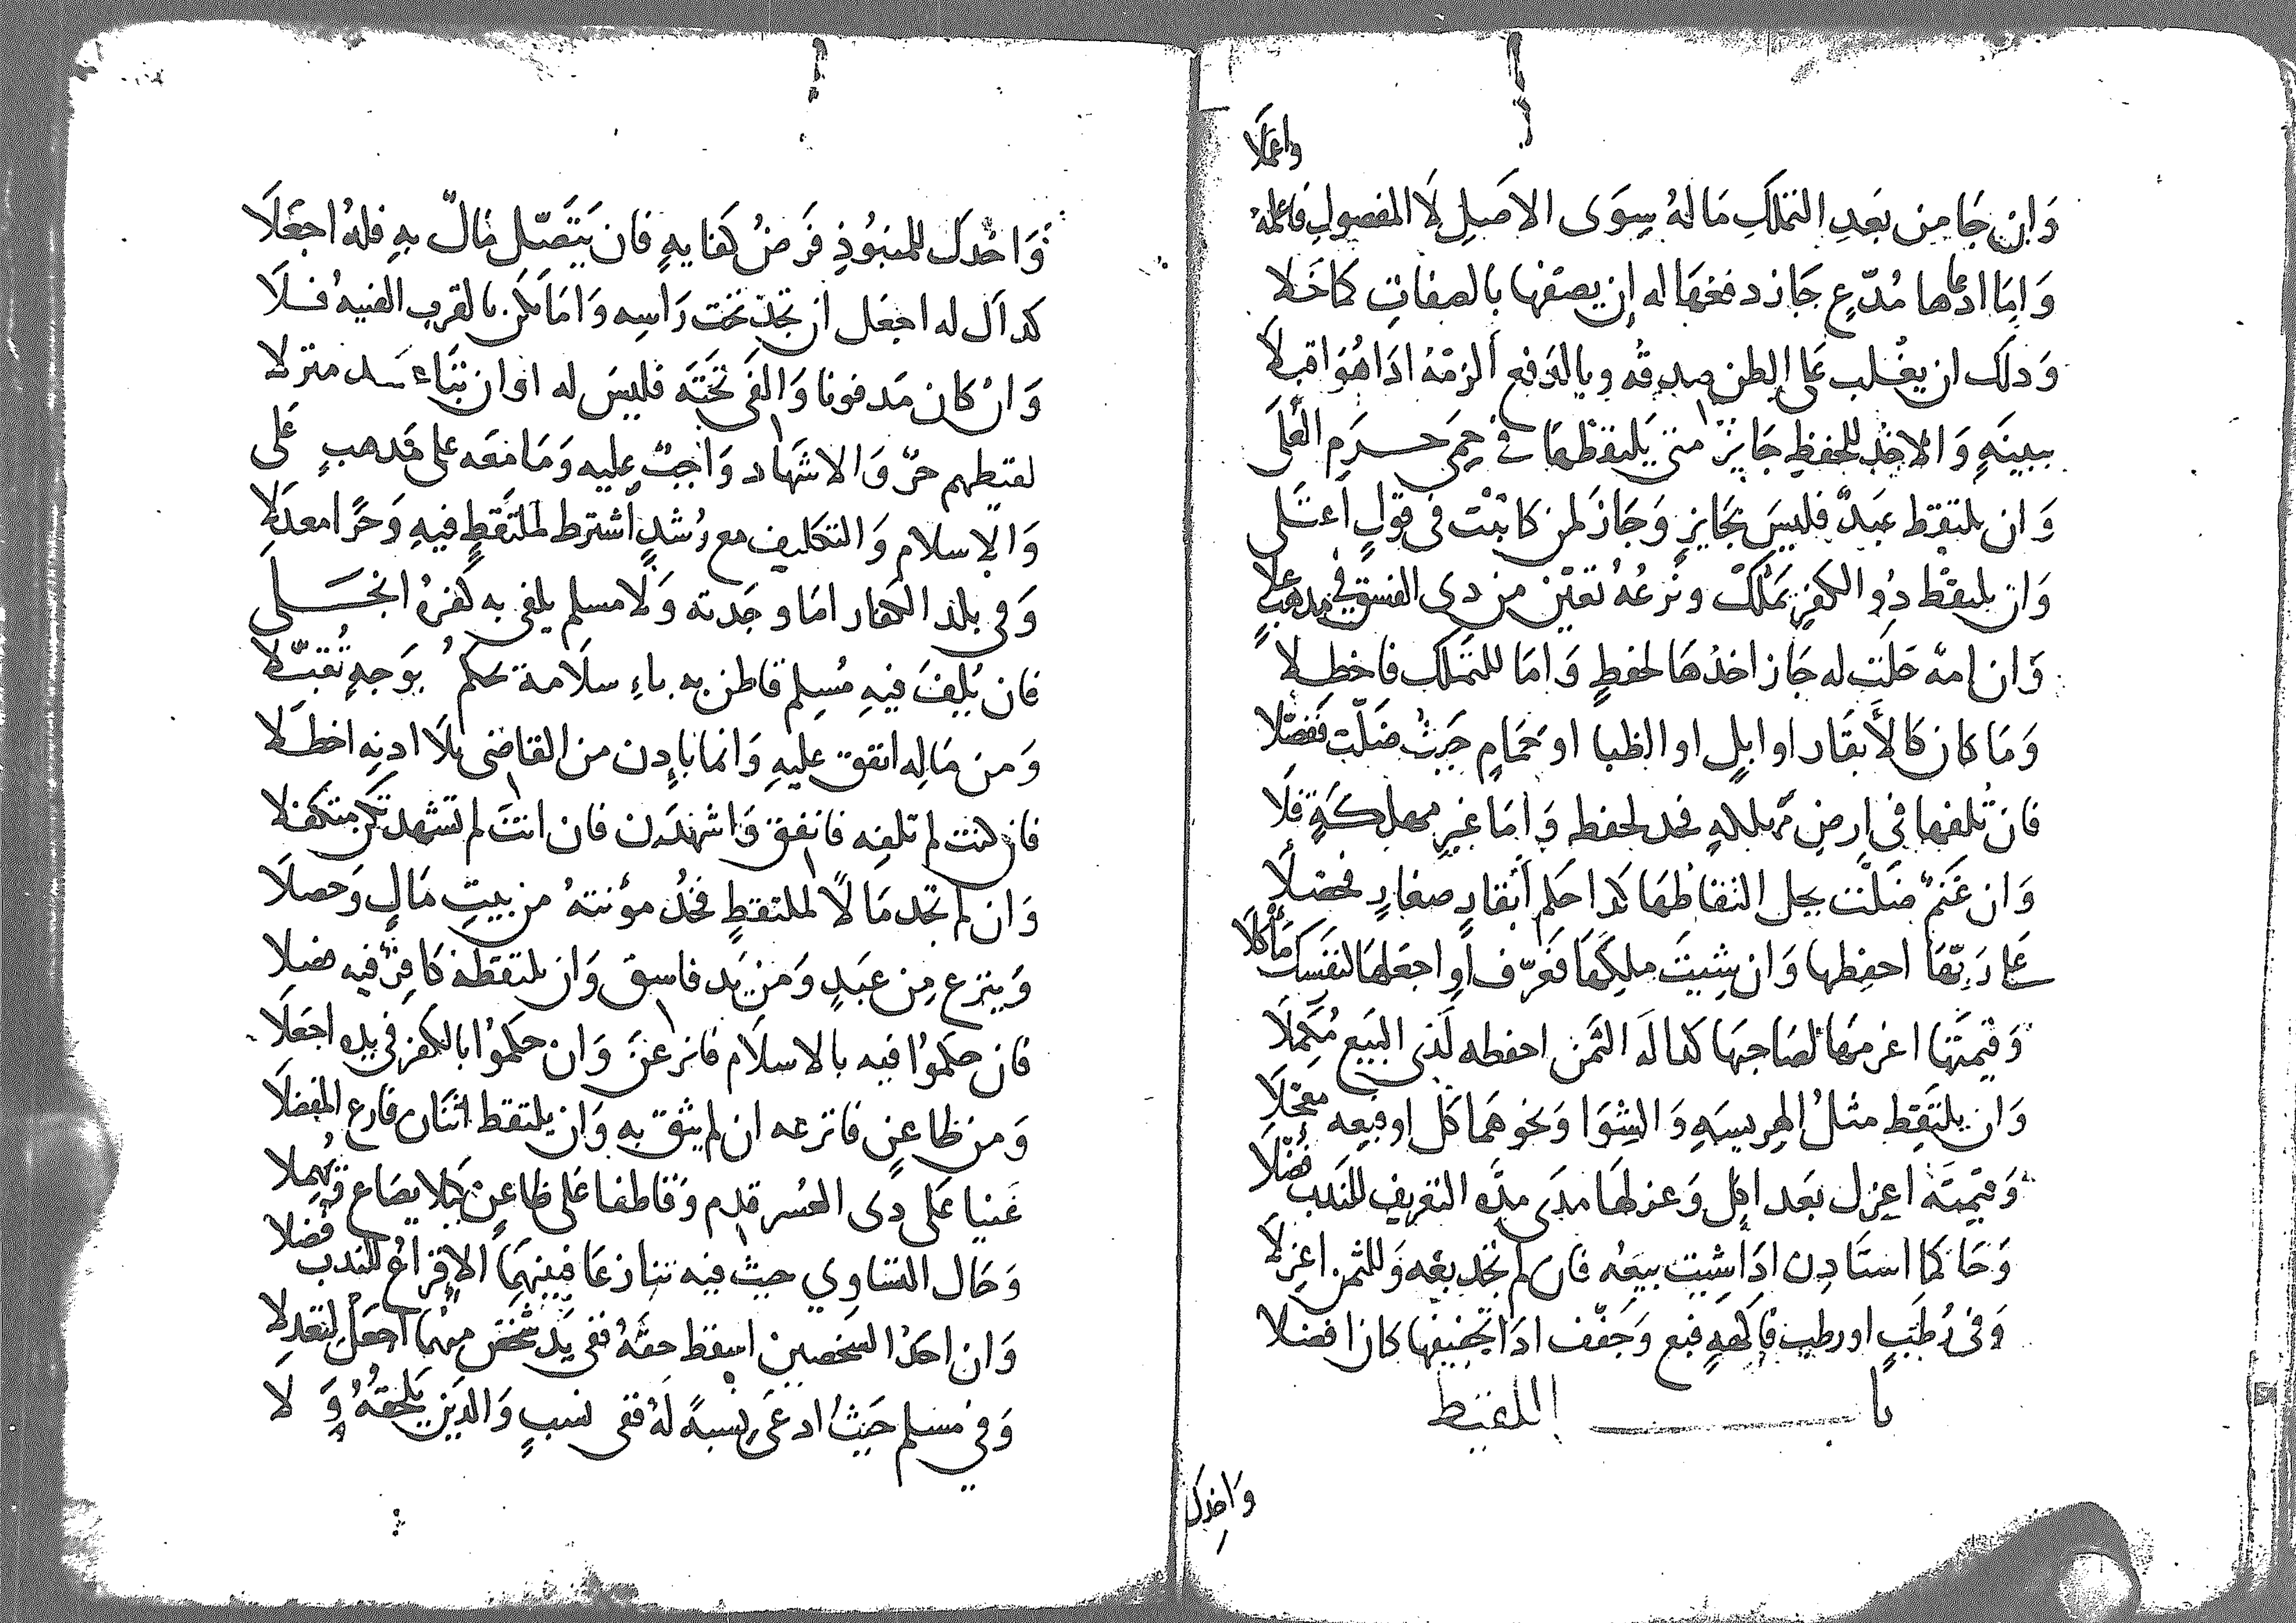 واعملا
وَان جَا من بَعدِ التملكِ مَا لهُ سِوَى الاصَلِ لَا المفصولِ فاعله
وَامَا ادعاها مُدّعٍ جَاز دفعهَا له إن يصفها بالصفاتِ كما خَلا
وَدلَك ان يغلب على الظن صدقه وبالدفع الزمْهُ ادَا هُو اقبلَا
ببينَهٍ وَالاخذ للحفظِ جَايزٌ متى يَلتقطْهَا في حِمَى حَرَمِ العُلَى
وَان يلتقط عَبدٌ فليسَ بجَايزٍ وَجَازَ لمن كاتبْتَ فى قولٍ اَعتَلى
وَان يلتقط ذُو الكفرِ يَملكْ ونزعُهُ تعيّن من دى الفسقِ في مذهبٍ علا
وَان امةٌ حَلَت له جَاز اخذهَا لحفظٍ وَامَا للتمَلك فاحظلا
وَمَا كان كالأَبقَار او ابلٍ او الظبا او حَمَامٍ حَيثُ ضَلّت ففصّلا
فان تُلفها في ارضِ مهلكهٍ فخد لحفظ وَامَا غيرِ مهلكَةٍ فلَا
وَان غَنمٌ ضَلّت يحل التقاطُهَا كدا حكم أبقارٍ صغارٍ فحصّلا
على رَبّها احفظها وَان شيتَ ملكهَا فعَرّف او اجعلها لنفسكَ مَأكلَا
وَقيمَتها اغرمهَا لصَاحبهَا كما لَه الثمن احفظه لَدَى البَيعِ مُكمِلَا
وَان يلتقِط مثلُ الهريسَهِ وَالشوَا وَنحوهمَا كل او فبعه معجّلَا
وَقيمتَه اعزل بَعد اكل وَعزلهَا مدَى مدَّهِ التعريف للندب فُضّلَا
وَحَاكما استَادن ادَا شيت بيعَه فان لم تجد بعْه وَللثمن اعزلَا
وَفى رُطَبٍ او رطبِ فاكهَةٍ فبع وَجَفّف ادَا تجفيفها كان افضلا
باب اللقيط
وَاخدك
وَاخْدكَ للمنبُوذِ فَرَضُ كفايهٍ فان يَتَصّل مَالٌ بهِ فلهُ اجعَلَا
كداك له اجعَل ان تجد تحت رَاسِه وَامَا يكن بالقربِ الفيهُ فلَا
وَانْ كان مَدفونا وَالفى تحتَه فليسَ له او ان بنَاء منزلا
لقيطهم حرّ وَالاشهَاد وَاجبٌ عليه وَمَا معَه على مَدهبٍ عَلى
وَالاسلام وَالتكليف مع رُشدٍ اشترط لملتقطٍ فيهِ وَحرّا معدلَا
وَفى بلد الكفار امَا وجَدته وَلَا مسلم يلفى به كفرهُ انجَلى
فان يُلفَ فيهِ مُسلم قاطن به باءِ سلَامة حكمٌ بوَجهٍ تُقبّلَا
وَمن مَالِه انفق عليهِ وَانما باِدن من القاضى بلَا ادنِه احظلَا
فان كنت لم تلفه فانفق وَاشهدَن فان انتَ لم تشهد تكن متكفلا
وَان لم تجد مَالًا لملتقطٍ فخُد مؤنتهُ من بيتِ مَالٍ وَحصلَا
وَينزع مِن عَبدٍ وَمن يَد فاسق وَان يلتقطه كَافرٌ فيه فصِلا
فان حكموُا فيه بالاسلَام فانزعنَ وَان حكموُا بالكفر فى يده اجعَلَا
وَمن ظاعنٍ فانزعه ان لم يثق به وَان يلتقط اثنَان فارع المفضلَا
غَنيا عَلى دى العُسر قدم وَقاطفا عَلى ظاعنٍ كيلا يضاع فيُهملا
وَحَال التساوي حيثُ فيه تنازعَا فبينهمَا الاِقراعُ للندب فُضلا
وَان احدُ الشخصين اسقط حقهُ ففى يَد شخصٍ منهما اجعَل لتعدلَا
وَفي مسلم حَيثُ ادعَى نسبةً لَهُ ففى نسبٍ وَالدين يَلحقهُ وَلَا